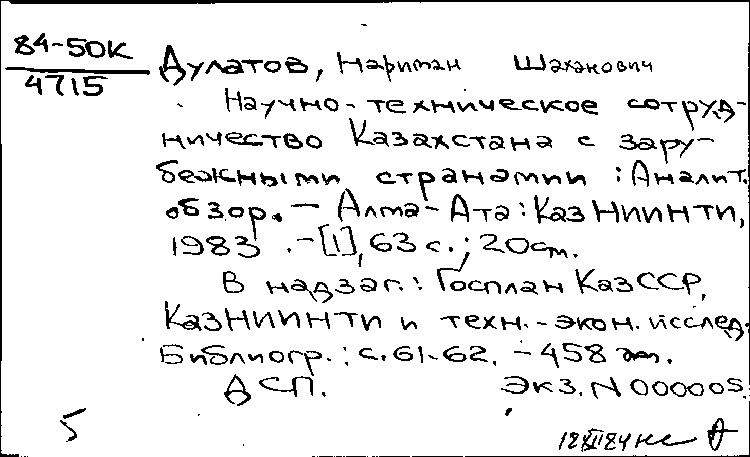 84-50К
4715
Дулатов, Нариман Шаханович
Научно-техническое сотруд-
ничество Казахстана с зару-
бежными странами : Аналит.
обзор. — Алма-Ата : КазНИИНТИ,
1983. — [1], 63 с. ; 20 см.
В надзаг.: Госплан КазССР,
КазНИИНТИ и техн.-экон. исслед.
Библиогр.: с. 61-62. — 458 экз.
ДСП. Экз. N 000005
5 12 XII 84